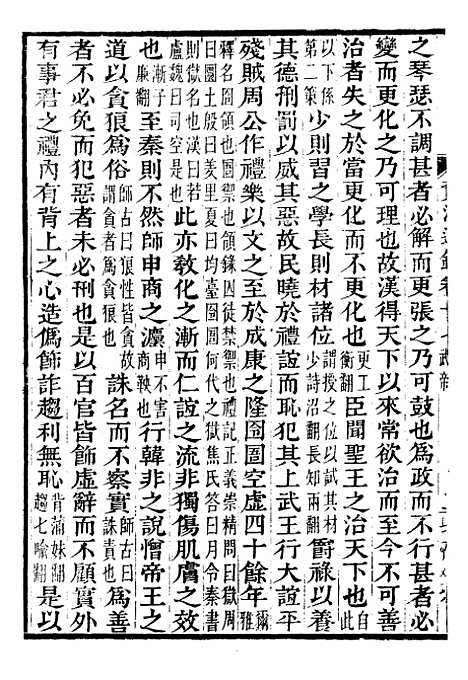 之琴瑟不調甚者必解而更張之乃可鼓也爲政而不行甚者必
變而更化之乃可理也故漢得天下以來常欲治而至今不可善
治者失之於當更化而不能更化也更工衡翻臣聞聖王之治天下也此
以下係第二策少則習之學長則材諸位謂授之位以試其材少詩沼翻長知兩翻爵祿以養
其德刑罰以威其惡故民曉於禮誼而恥犯其上武王行大誼平
殘賊周公作禮樂以文之至於成康之隆囹圄空虛四十餘年爾雅
釋名囹領也圄禦也領錄囚徒禁禦也禮記正義崇精問曰獄周曰圜土殷曰羑里夏曰均臺囹圄何代之獄焦氏荅曰月令秦書
則獄名也漢曰若盧魏曰司空是也此亦敎化之漸而仁誼之流非獨傷肌膚之效
也漸子廉翻至秦則不然師申商之灋申不害商鞅也行韓非之說憎帝王之
道以貪狼爲俗師古曰狼性皆貪故謂貪爲貪狼誅名而不察實師古曰誅責也爲善
者不必免而犯惡者未必刑也是以百官皆飾虛辭而不顧實外
有事君之禮內有背上之心造僞飾詐趨利無恥背蒲妹翻趨七喻翻是以